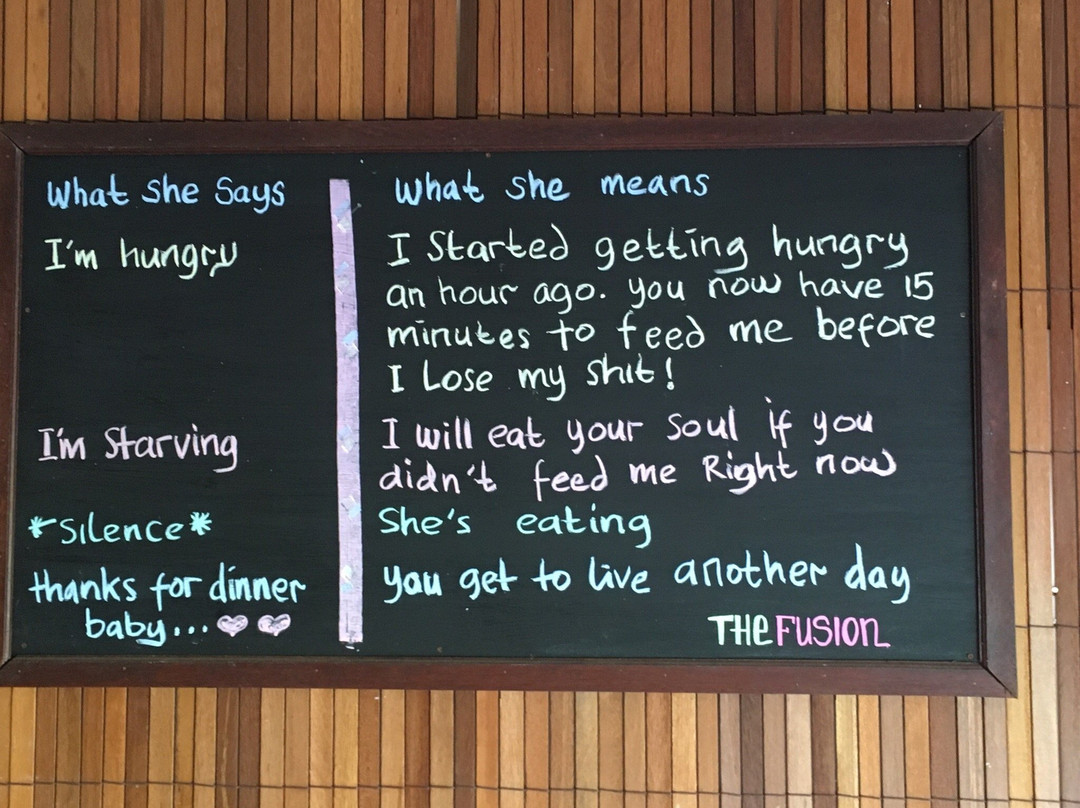 What She Says
I'm hungry
I'm Starving
*Silence*
thanks for dinner
baby...
What she means
I Started getting hungry
an hour ago. you now have 15
minutes to feed me before
I Lose my shit!
I will eat your soul if you
didn't feed me Right now
She's eating
you get to live another day
THE FUSION